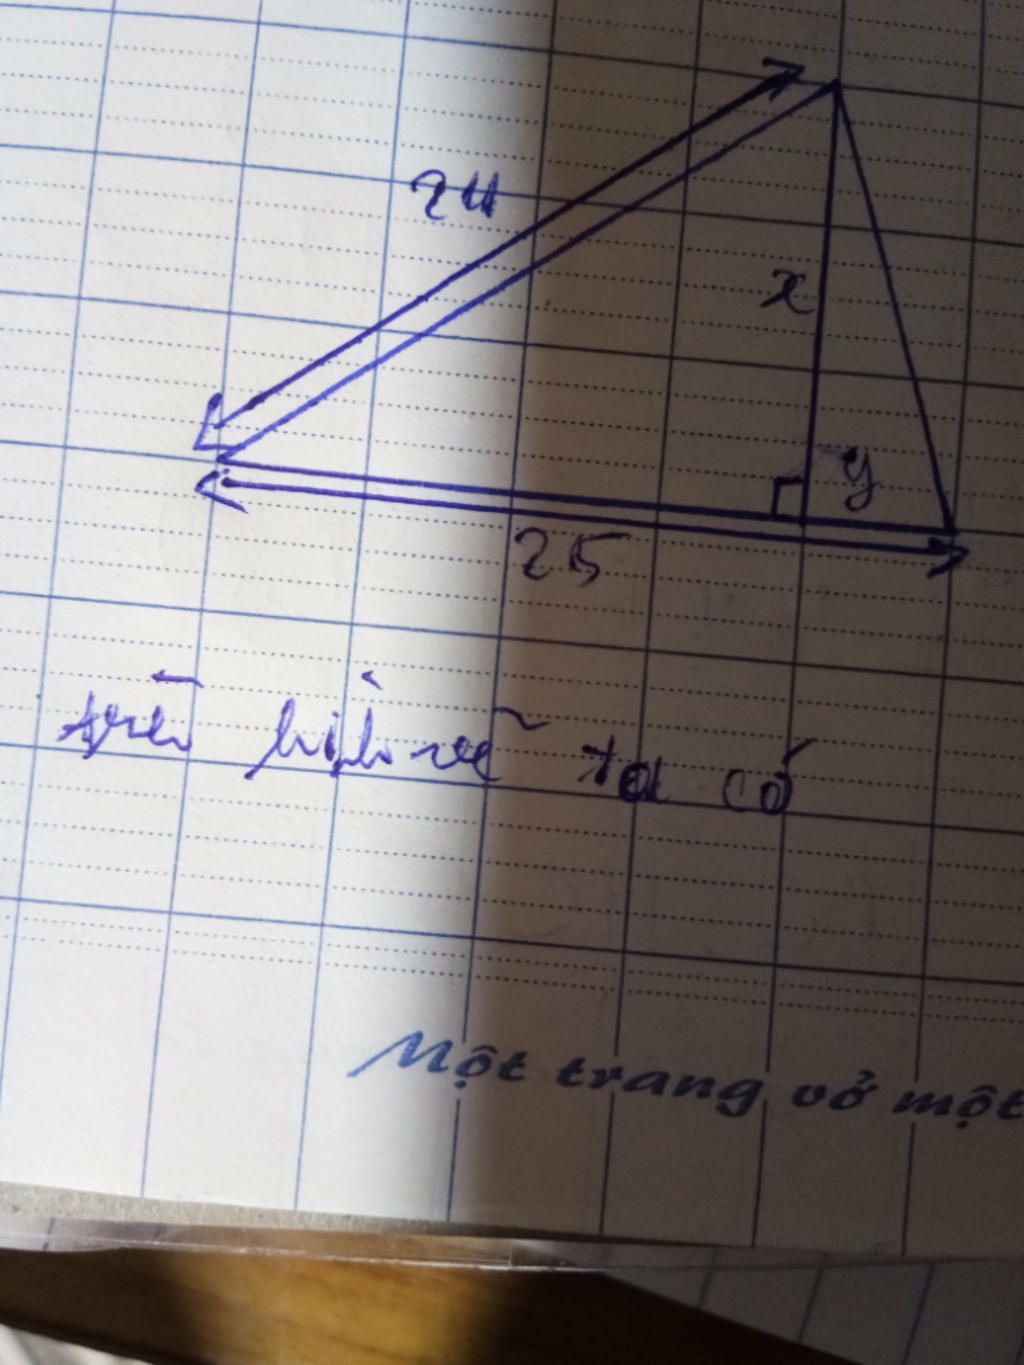 24
x
y
25
trên hình vẽ ta có
Một trang vở một